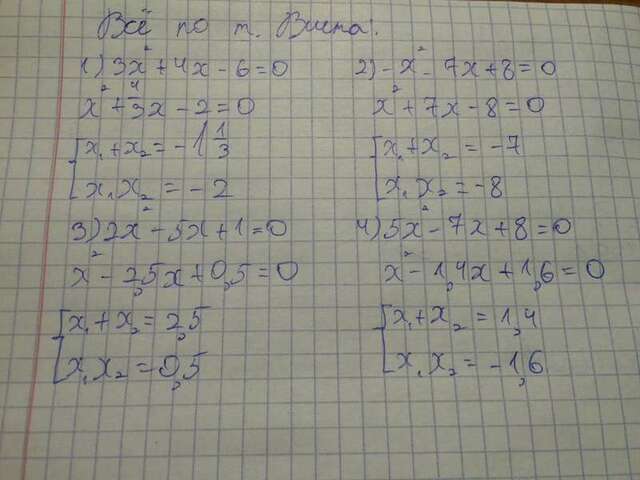 Всё по т. Виета:
1) 3x² + 4x - 6 = 0
x² + 4/3x - 2 = 0
[x₁ + x₂ = -1 1/3
[x₁x₂ = -2
2) -x² - 7x + 8 = 0
x² + 7x - 8 = 0
[x₁ + x₂ = -7
[x₁x₂ = -8
3) 2x² - 5x + 1 = 0
x² - 2,5x + 0,5 = 0
[x₁ + x₂ = 2,5
[x₁x₂ = 0,5
4) 5x² - 7x + 8 = 0
x² - 1,4x + 1,6 = 0
[x₁ + x₂ = 1,4
[x₁x₂ = -1,6